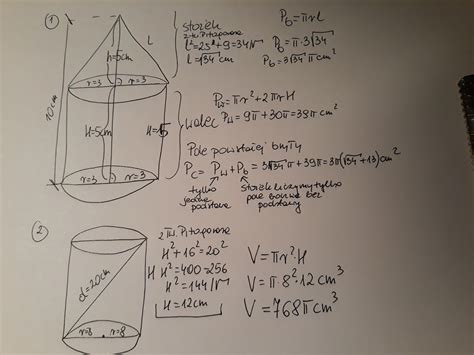 ①
stożek
z tw. Pitagorasa
l²=25+9=34/√
l=√34 cm
P_b=πrl
P_b=π·3√34
P_b=3√34π cm²
h=5cm
L
r=3 r=3
10cm
H=5cm
H=5
r=3 r=3
walec
P_w=πr²+2πrH
P_w=9π+30π=39π cm²
Pole powstałej bryły
P_c=P_w+P_b=3√34π+39π=3π(√34+13)cm²
tylko
jedna
podstawa
stożek liczymy tylko
pole boczne bez
podstawy
②
d=20cm
r=8 r=8
H
z tw. Pitagorasa
H²+16²=20²
H²=400-256
H²=144/√
H=12cm
V=πr²H
V=π·8²·12 cm³
V=768π cm³